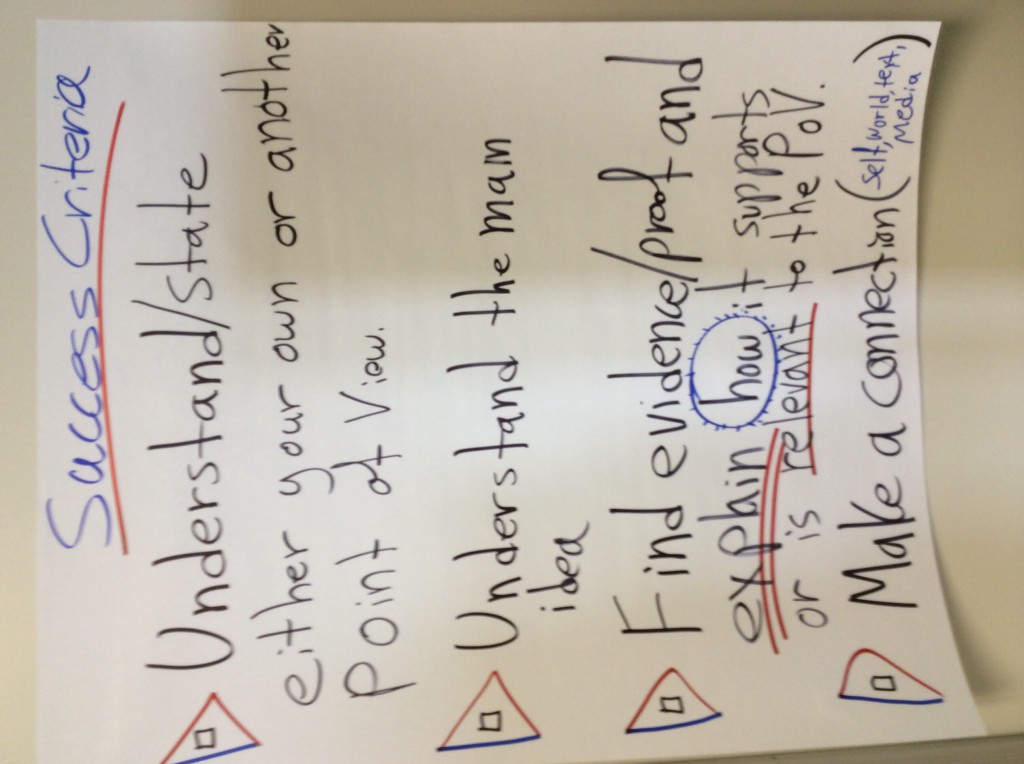 Success Criteria
Understand/state
either your own or another
Point of View.
Understand the main
idea
Find evidence/proof and
explain how it supports
or is relevant to the PoV.
Make a connection (self, world, text,
Media)